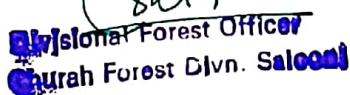 Divisional Forest Officer
Churah Forest Divn. Salooni